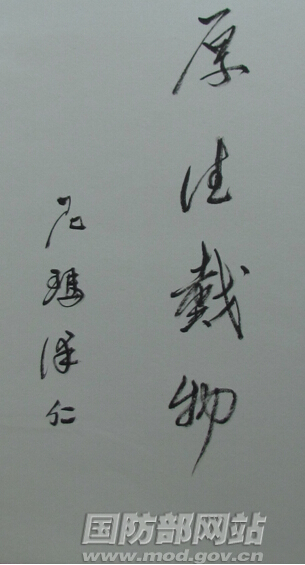 厚德載物
尼瑪泽仁
国防部网站
www.mod.gov.cn